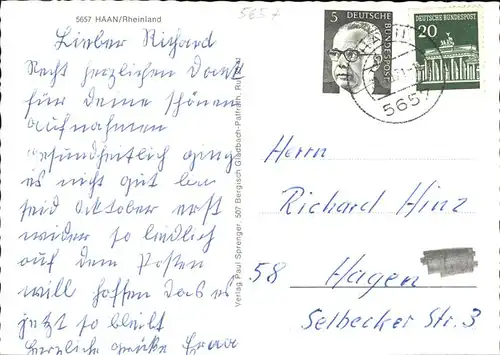 5657 HAAN/Rheinland
5657
Lieber Richard
Recht herzlichen Dank
für Deine schönen
Aufnahmen
Gesundheitlich ging
es nicht gut bin
seid Oktober erst
wider so leidlich
auf dem Posten
will hoffen das es
jetzt so bleibt
Herzliche Grüße
Verlag Paul Sprenger · 507 Bergisch Gladbach-Paffrath
5
DEUTSCHE
BUNDESPOST
DEUTSCHE BUNDESPOST
20
5657
Herrn
Richard Hinz
58 Hagen
Selbecker Str. 3